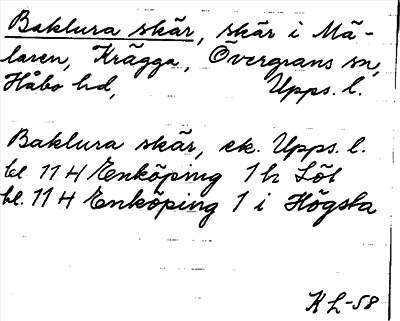 Baklura skär, skär i Mä-
laren, Krägga, Övergrans sn,
Håbo hd, Upps. l.
Baklura skär, ek. Upps. l.
bl 114 Enköping 1 h Löt
bl. 114 Enköping 1 i Högsta
KL-58